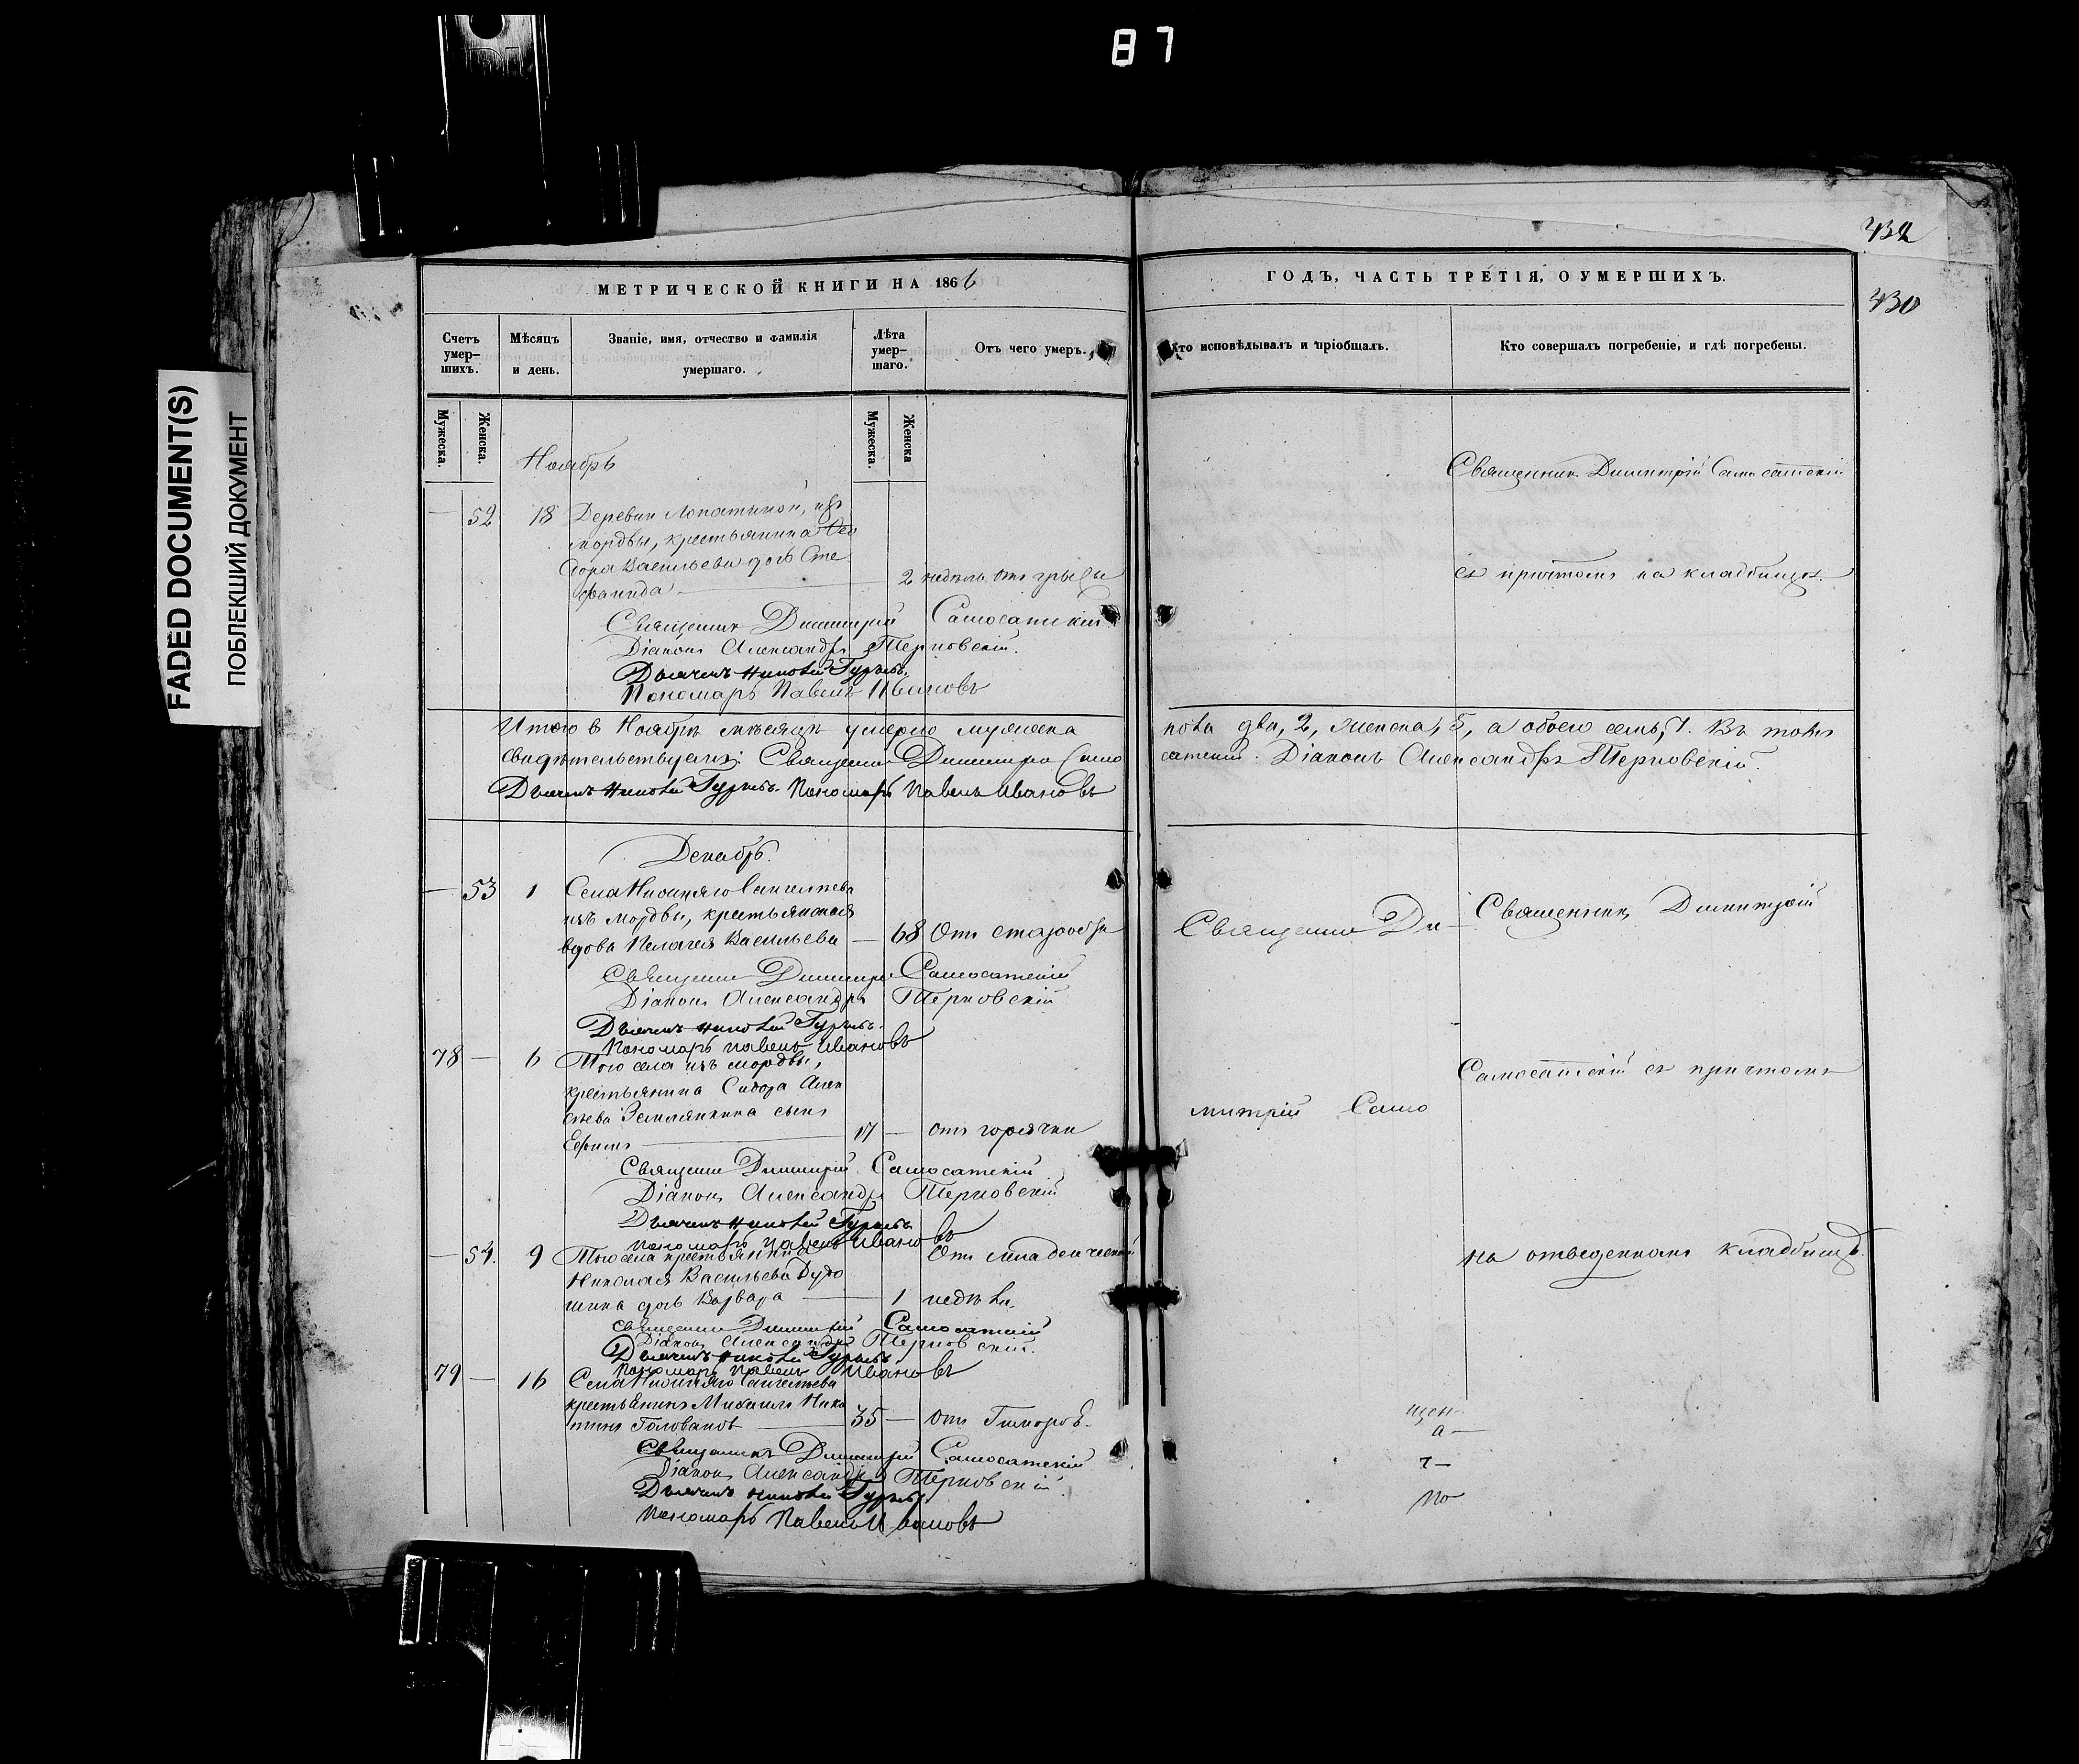 87
FADED DOCUMENT(S)
ПОБЛЕКШИЙ ДОКУМЕНТ
432
430
МЕТРИЧЕСКОЙ КНИГИ НА 1866
Счетъ умер-
шихъ.
Мѣсяцъ
и день.
Званіе, имя, отчество и фамилія
умершаго.
Лѣта
умер-
шаго.
Отъ чего умеръ.
Мужеска.
Женска.
Мужеска.
Женска
Ноябрь
— 52 18 Деревни Лопатиной, изъ
мордвы, крестьянина Ѳео
дора Васильева дочь Сте
фанида — 2 недѣль отъ грыжи
Священникъ Димитрій Самосатскій
Діаконъ Александръ Терновскій.
Дьячекъ Николай Гурьевъ.
Пономарь Павелъ Ивановъ
Итого в Ноябрѣ мѣсяцѣ умерло мужеска
свидѣтельствуемъ: Священникъ Димитрій Само
Дьячекъ Николай Гурьевъ. Пономарь Павелъ Ивановъ
Декабрь.
— 53 1 Села Нижняго
изъ мордвы, крестьянская
вдова Пелагея Васильева — 68 Отъ старости
Священникъ Димитрій Самосатскій
Діаконъ Александръ Терновскій
Дьячекъ Николай Гурьевъ.
Пономарь Павелъ Ивановъ
78 — 6 Того села изъ мордвы,
крестьянина Сидора Алек
сѣева Землянкина сынъ
Ефимъ — 17 — отъ горячки
Священникъ Димитрій Самосатскій
Діаконъ Александръ Терновскій
Дьячекъ Николай Гурьевъ
Пономарь Павелъ Ивановъ
— 54. 9 Того села крестьянина Отъ младенческой
Николая Васильева
дочь Варвара — 1 недѣли
Священникъ Димитрій Самосатскій
Діаконъ Александръ Терновскій.
Дьячекъ Николай Гурьевъ.
Пономарь Павелъ Ивановъ
79 — 16 Села Нижняго
крестьянинъ Михаилъ Ники
тинъ Голованов — 35 — отъ
Священникъ Димитрій Самосатскій
Діаконъ Александръ Терновскій.
Дьячекъ Николай Гурьевъ.
Пономарь Павелъ Ивановъ
ГОДЪ, ЧАСТЬ ТРЕТІЯ, О УМЕРШИХЪ.
Кто исповѣдывалъ и пріобщалъ.
Кто совершалъ погребеніе, и гдѣ погребены.
Священникъ Димитрій Самосатскій
съ причтомъ на кладбищѣ.
пола два, 2, женска, 5, а обоего семь, 7. Въ томъ
сатскій. Діаконъ Александръ Терновскій.
Священникъ Ди
Священникъ Димитрій
Самосатскій съ причтомъ
митрій Само
на отведенномъ кладбищѣ.